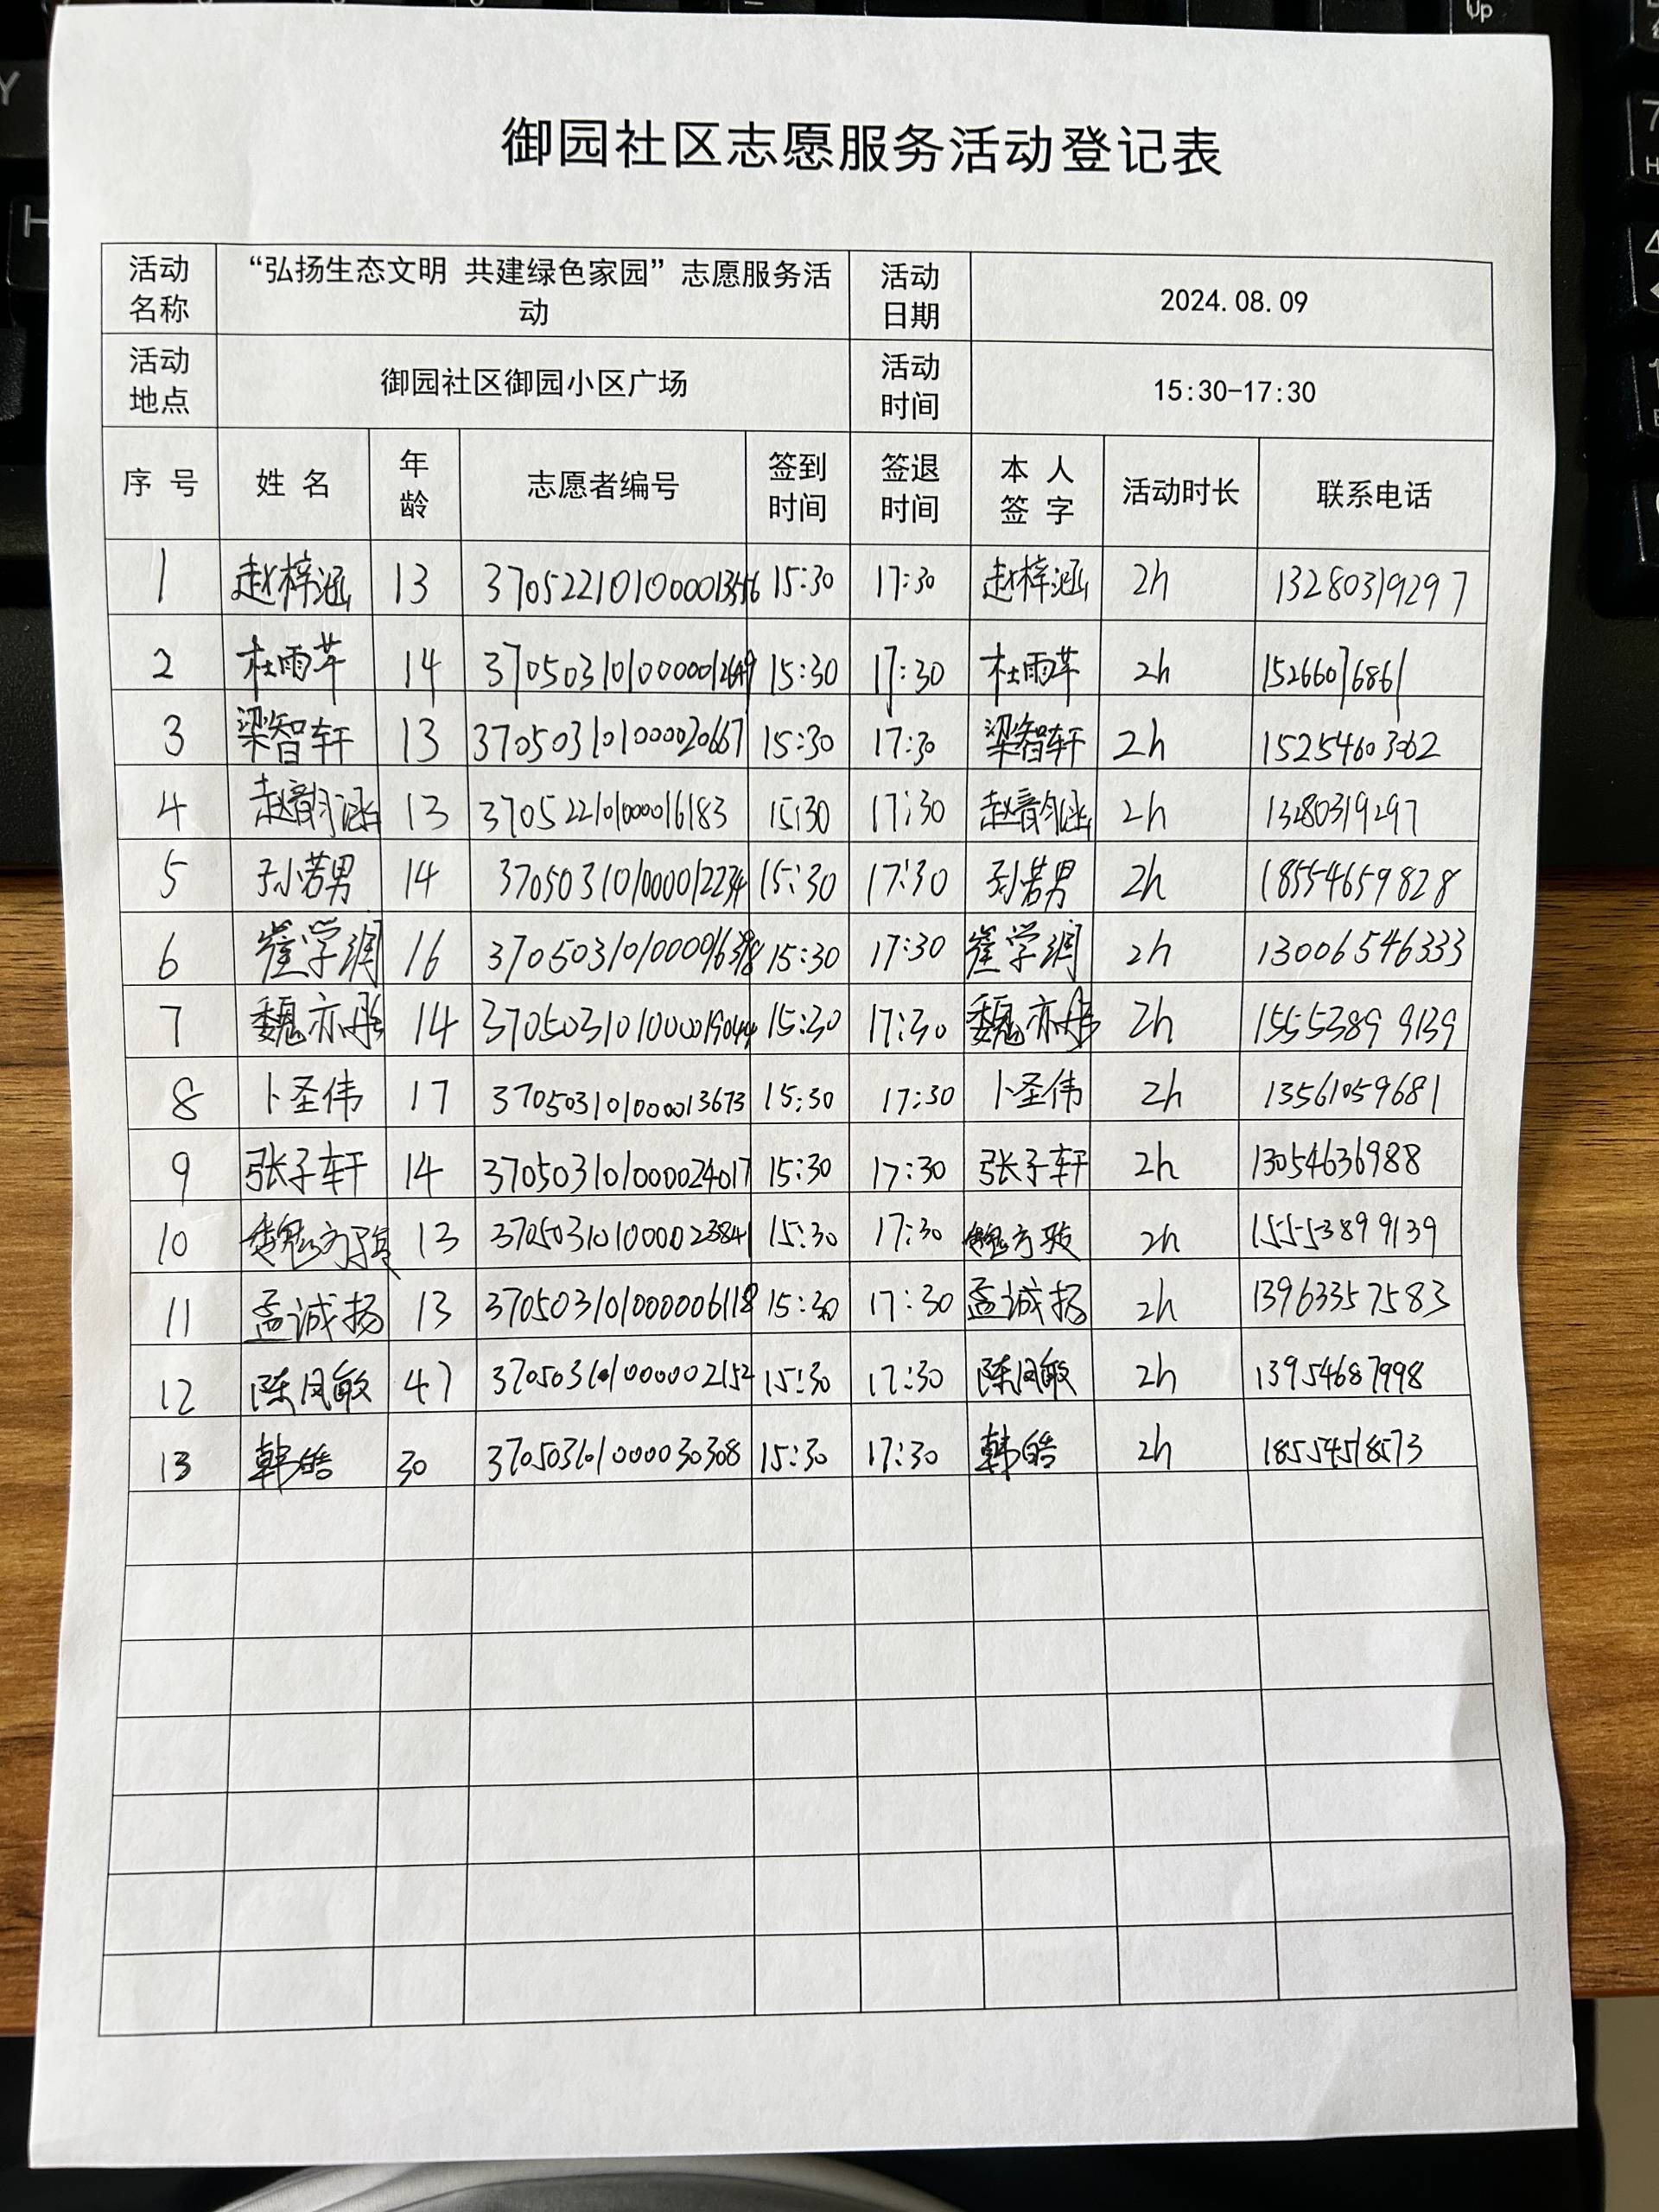 御园社区志愿服务活动登记表
活动名称 “弘扬生态文明 共建绿色家园”志愿服务活动 活动日期 2024.08.09
活动地点 御园社区御园小区广场 活动时间 15:30-17:30
序 号 姓 名 年龄 志愿者编号 签到时间 签退时间 本人签字 活动时长 联系电话
1 赵梓涵 13 15:30 17:30 赵梓涵 2h 13280319297
2 14 15:30 17:30 2h 15266071686
3 梁智轩 13 370503101000020667 15:30 17:30 梁智轩 2h
4 赵韵涵 13 370522101000016183 15:30 17:30 赵韵涵 2h 13280319297
5 孙若男 14 370503101000012234 15:30 17:30 孙若男 2h 18554659828
6 崔学润 16 15:30 17:30 崔学润 2h 13006546333
7 魏亦彤 14 370503101000019044 15:30 17:30 魏亦彤 2h 15553899139
8 卜圣伟 17 370503101000013673 15:30 17:30 卜圣伟 2h 13561059681
9 张子轩 14 370503101000024017 15:30 17:30 张子轩 2h 13054636988
10 13 370503101000023841 15:30 17:30 2h 15553899139
11 孟诚扬 13 370503101000006118 15:30 17:30 孟诚扬 2h 13963357583
12 陈凤敏 47 15:30 17:30 陈凤敏 2h 13954687998
13 韩皓 30 15:30 17:30 韩皓 2h 18554518573